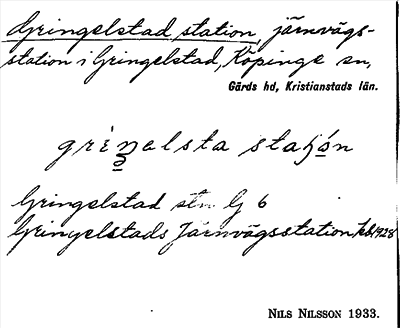 Gringelstad station, järnvägs-
station i Gringelstad, Köpinge sn,
Gärds hd, Kristianstads län.
Gringelstad stn G 6
Gringelstads Järnvägsstation, kbl 1928
NILS NILSSON 1933.